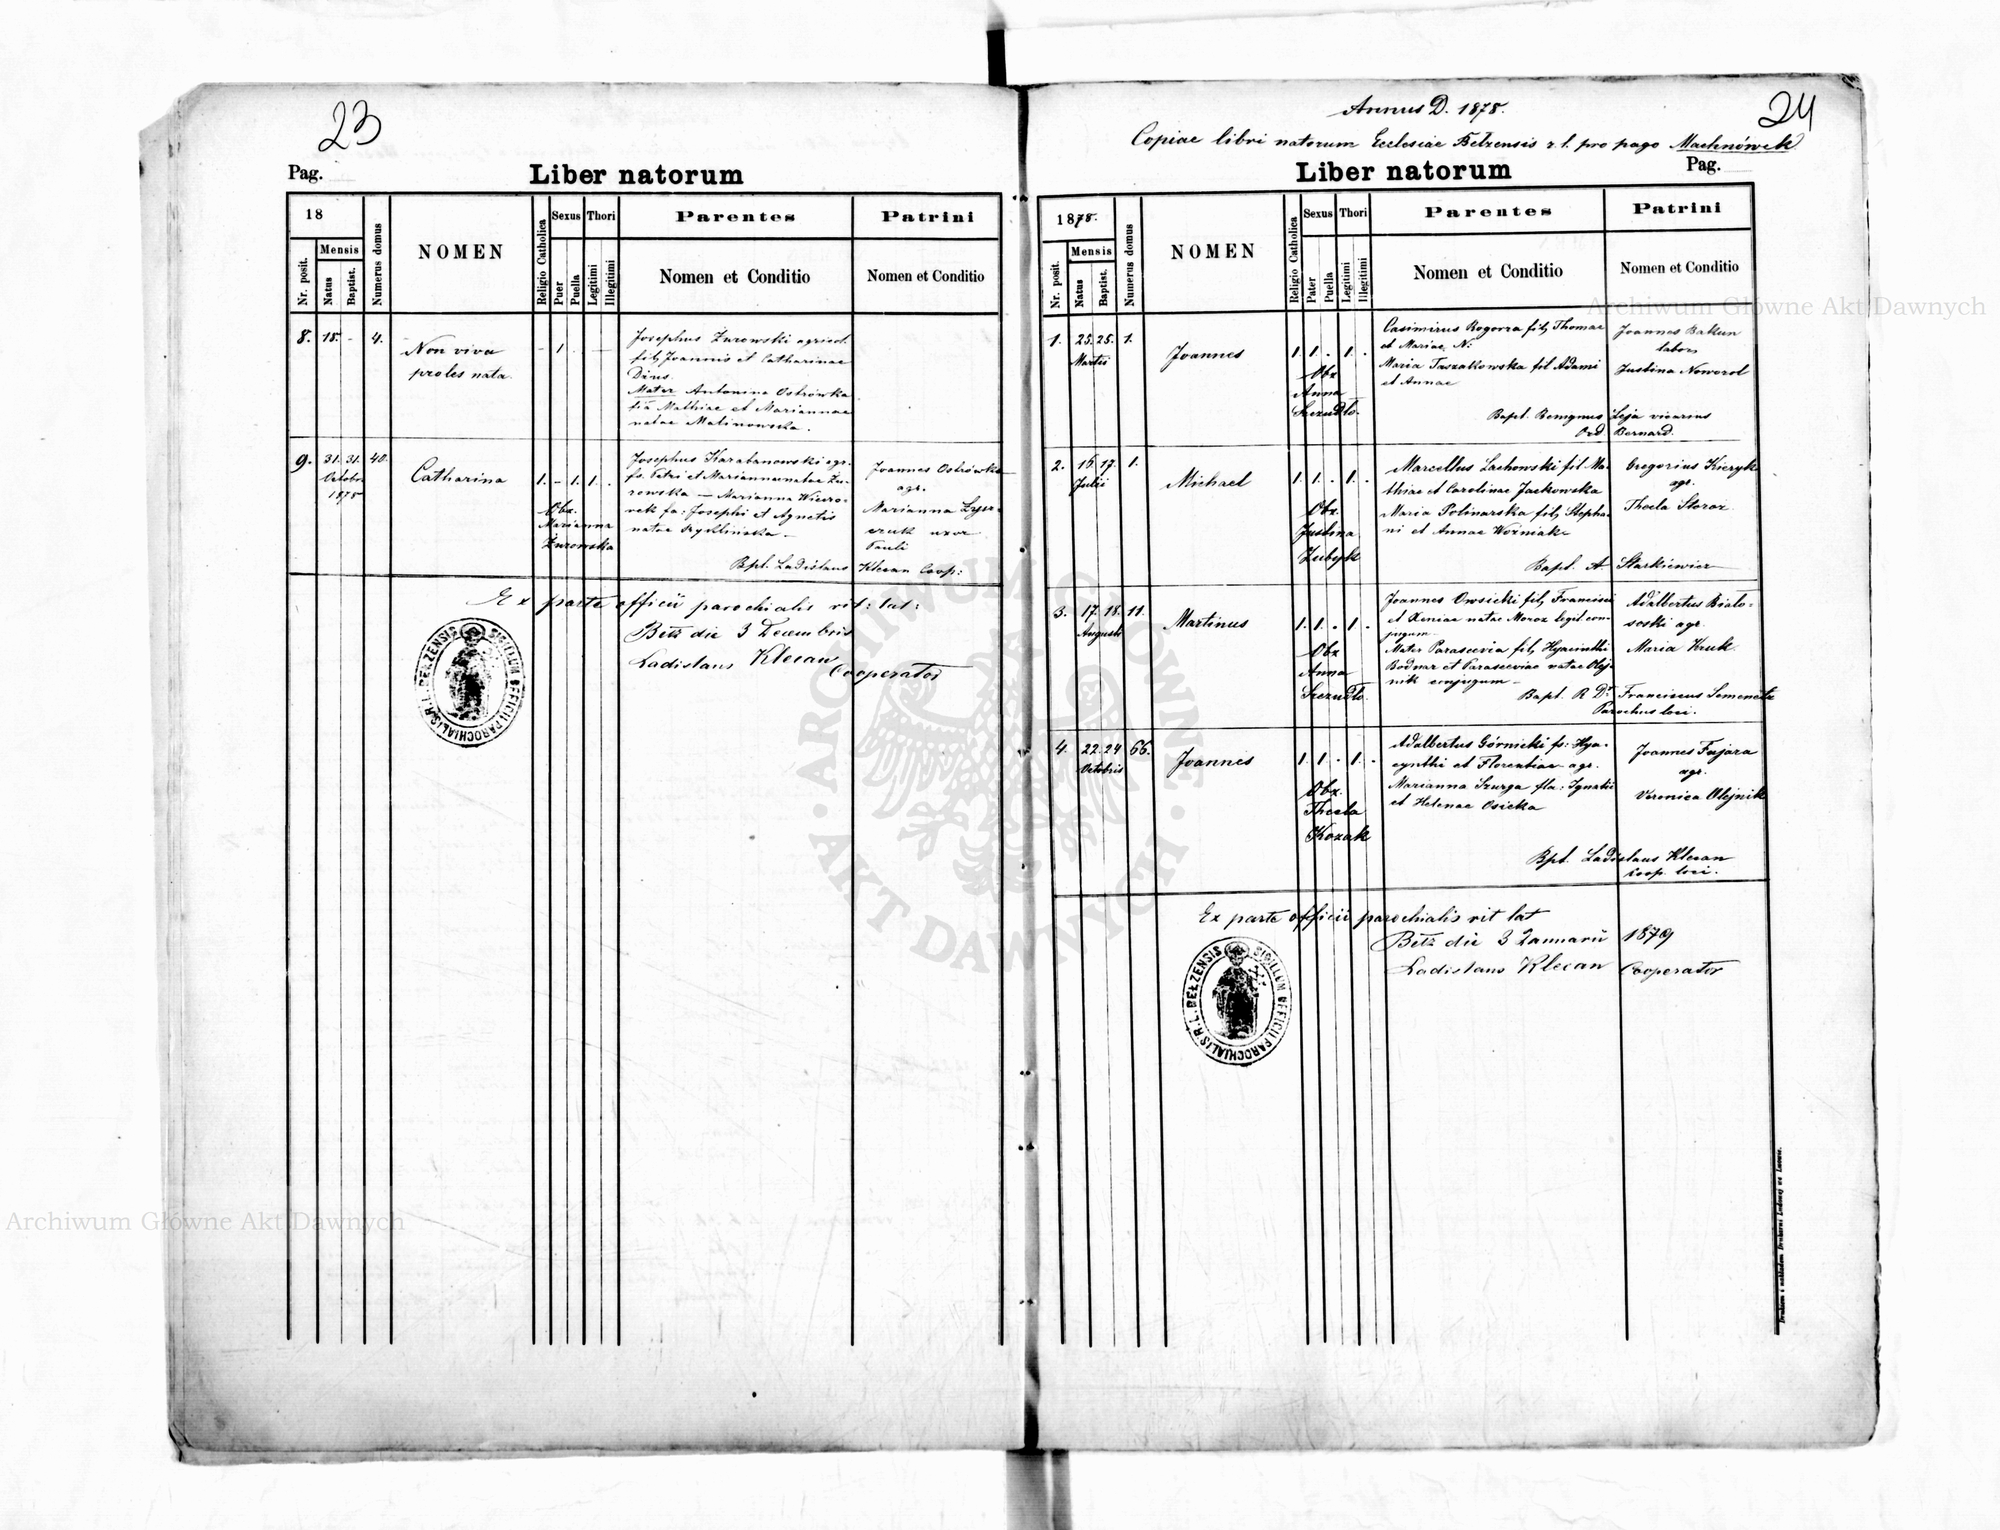 23
Pag.
Liber natorum
18
Mensis
Nr. posit.
Natus
Baptist.
Numerus domus
NOMEN
Religio Catholica
Sexus
Puer
Puella
Thori
Legitimi
Illegitimi
Parentes
Nomen et Conditio
Patrini
Nomen et Conditio
8. 18. - 4.
Non viva
proles nata.
- 1 . -
Josephus Żurowski agricol.
fil, Joannis et Catharinae
Mater Antonina Ostrówka
fia Mathiae et Mariannae
natae Malinowska.
9. 31. 31. 40.
Octobr
1878
Catharina
1. - 1. 1.
Obz.
Marianna
Żurowska
Josephus Karabanowski agr.
fs. Petri et Mariannae natae Żu-
rowska — Marianna Wiero-
rek fa: Josephi et Agnetis
natae Rychlińska —
Joannes Ostrówka
agr.
Marianna
uxor
Pauli
Bpt. Ladislaus Klecan Coop:
Ex parte officii parochialis rit: lat:
Bełz die 3 Decembris
Ladislaus Klecan
Cooperator
SIGILLUM OFFICII PAROCHIALIS R.L. BEŁZENSIS
24
Annus D. 1878.
Copiae libri natorum Ecclesiae Bełzensis r. l. pro pago Machnówek
Liber natorum
Pag.
1878.
Mensis
Nr. posit.
Natus
Baptist.
Numerus domus
NOMEN
Religio Catholica
Sexus
Pater
Puella
Thori
Legitimi
Illegitimi
Parentes
Nomen et Conditio
Patrini
Nomen et Conditio
1. 25. 25. 1.
Martii
Joannes
1. 1. . 1. .
Obz
Anna
Szczudło.
Casimirus Rogorza fil, Thomae
et Mariae N:
Maria Taszakowska fil Adami
et Annae
Joannes Bakun
labor
Justina Noworol
Bapt. Benignus Leja vicarius
Ord Bernard.
2. 16. 17. 1.
Julii
Michael
1. 1. . 1. .
Obz
Justina
Zubyk
Marcellus Lachowski fil Ma-
thiae et Carolinae Jackowska
Maria Polinarska fil, Stepha-
ni et Annae Woźniak
Gregorius Kieryk
agr.
Thecla Storoz
Bapt. A Starkiewicz
3. 17. 18. 11.
Augusti
Martinus
1. 1. . 1. .
Obz
Anna
Szczudło.
Joannes Owsicki fil, Francisci
et Xeniae natae Moroz legit con-
jugum.
Mater Parascevia fil, Hyacinthi
Bodnar et Parasceviae natae Olej-
nik conjugum —
Adalbertus Biało-
soski agr.
Maria Kruk.
Bapt. R D. Franciscus Semenetz
Parochus loci.
4. 22. 24 66.
Octobris
Joannes
1. 1. . 1. .
Obz.
Thecla
Kozak
Adalbertus Górnicki fs: Hya-
cynthi et Florentiae agr.
Marianna Szurga fla: Ignatii
et Helenae Osicka
Joannes Fujara
agr.
Veronica Olejnik
Bpt. Ladislaus Klecan
Coop. loci.
Ex parte officii parochialis rit lat
Bełz die 3 Januarii 1879
Ladislaus Klecan Cooperator
SIGILLUM OFFICII PAROCHIALIS R.L. BEŁZENSIS
Drukiem i nakładem Drukarni Ludowej we Lwowie.
Archiwum Główne Akt Dawnych
Archiwum Główne Akt Dawnych
ARCHIWUM GŁÓWNE · AKT DAWNYCH ·